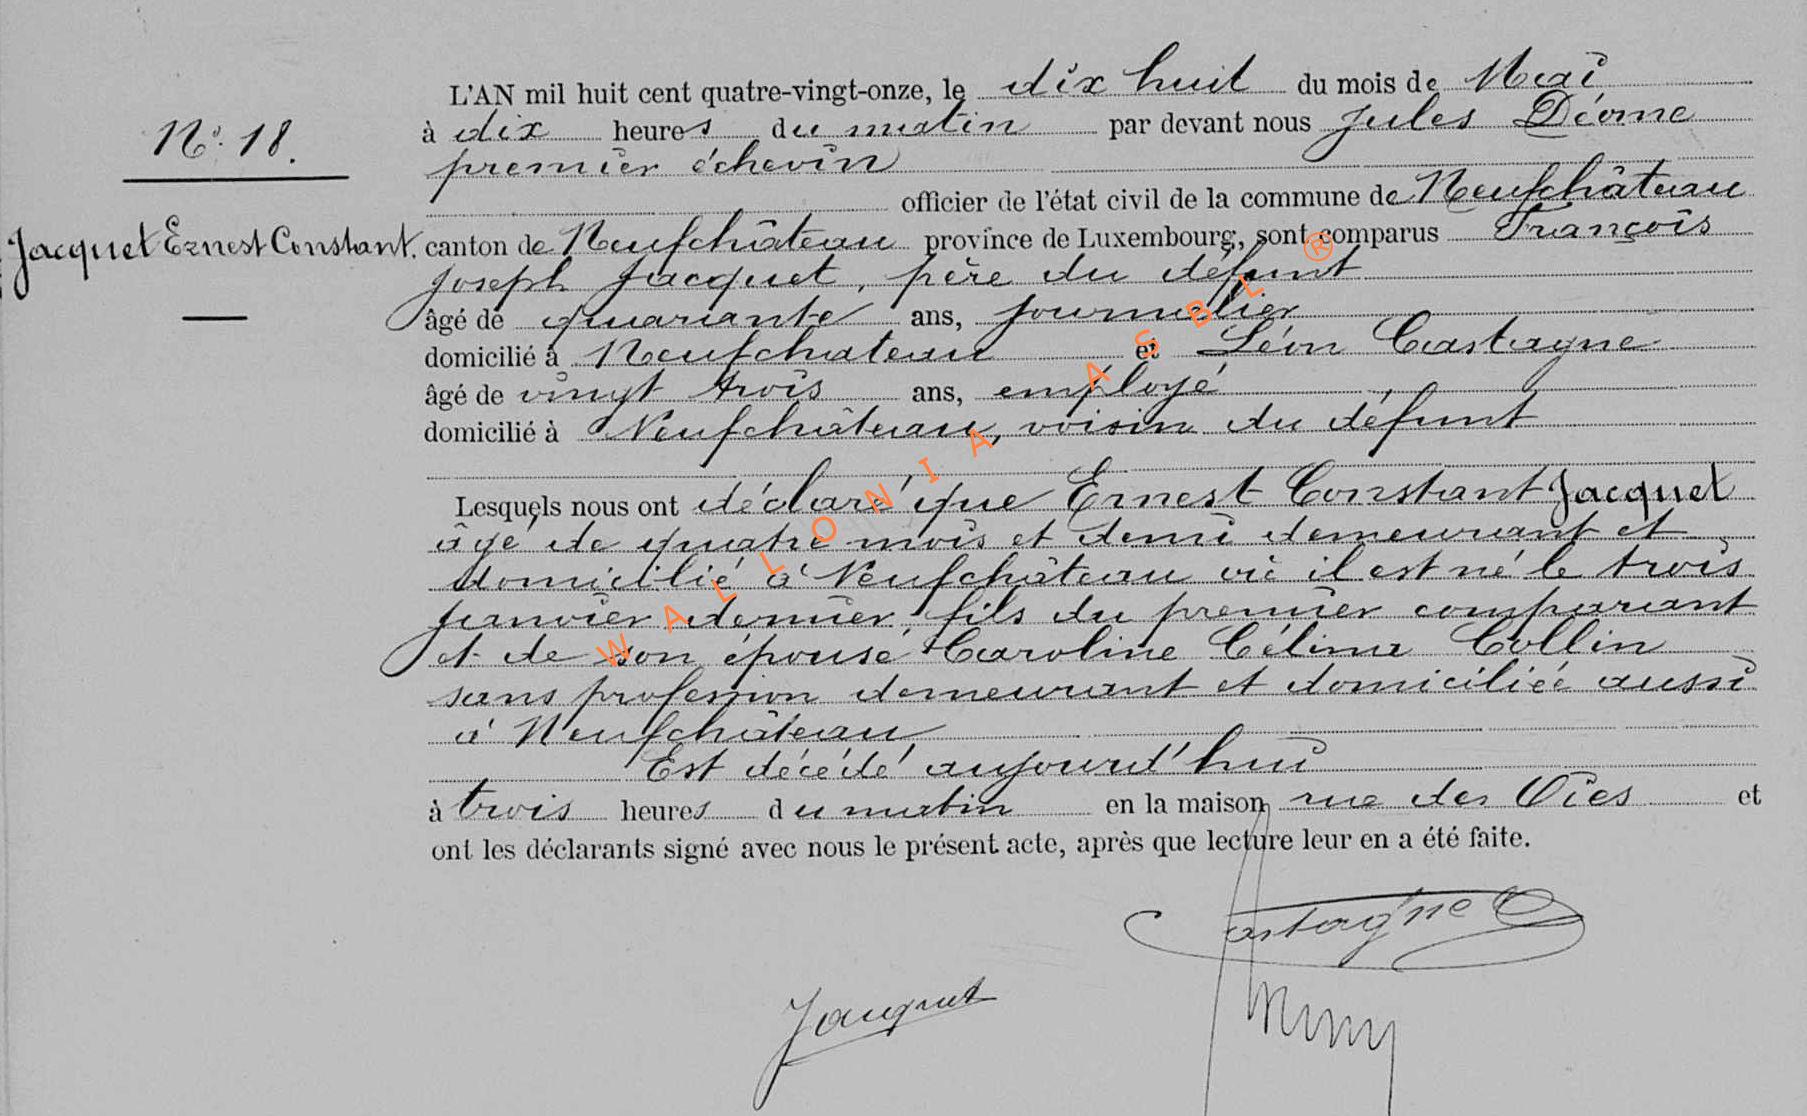 L'AN mil huit cent quatre-vingt-onze, le dix huit du mois de Mai
N° 18.
à dix heures du matin par devant nous Jules Déome
premier échevin
officier de l'état civil de la commune de Neufchâteau
Jacquet Ernest Constant.
canton de Neufchâteau province de Luxembourg, sont comparus François
Joseph Jacquet, père du défunt
âgé de quarante ans, journalier
domicilié à Neufchateau et Léon Castagne
âgé de vingt trois ans, employé
domicilié à Neufchâteau, voisin du défunt
Lesquels nous ont déclaré que Ernest Constant Jacquet
âgé de quatre mois et demi demeurant et
domicilié à Neufchâteau où il est né le trois
janvier dernier, fils du premier comparant
et de son épouse Caroline Célina Collin
sans profession demeurant et domiciliée aussi
à Neufchâteau,
Est décédé aujourd'hui
à trois heures du matin en la maison rue des Oies et
ont les déclarants signé avec nous le présent acte, après que lecture leur en a été faite.
Castagne
Jacquet
WALLONIA ASBL ®